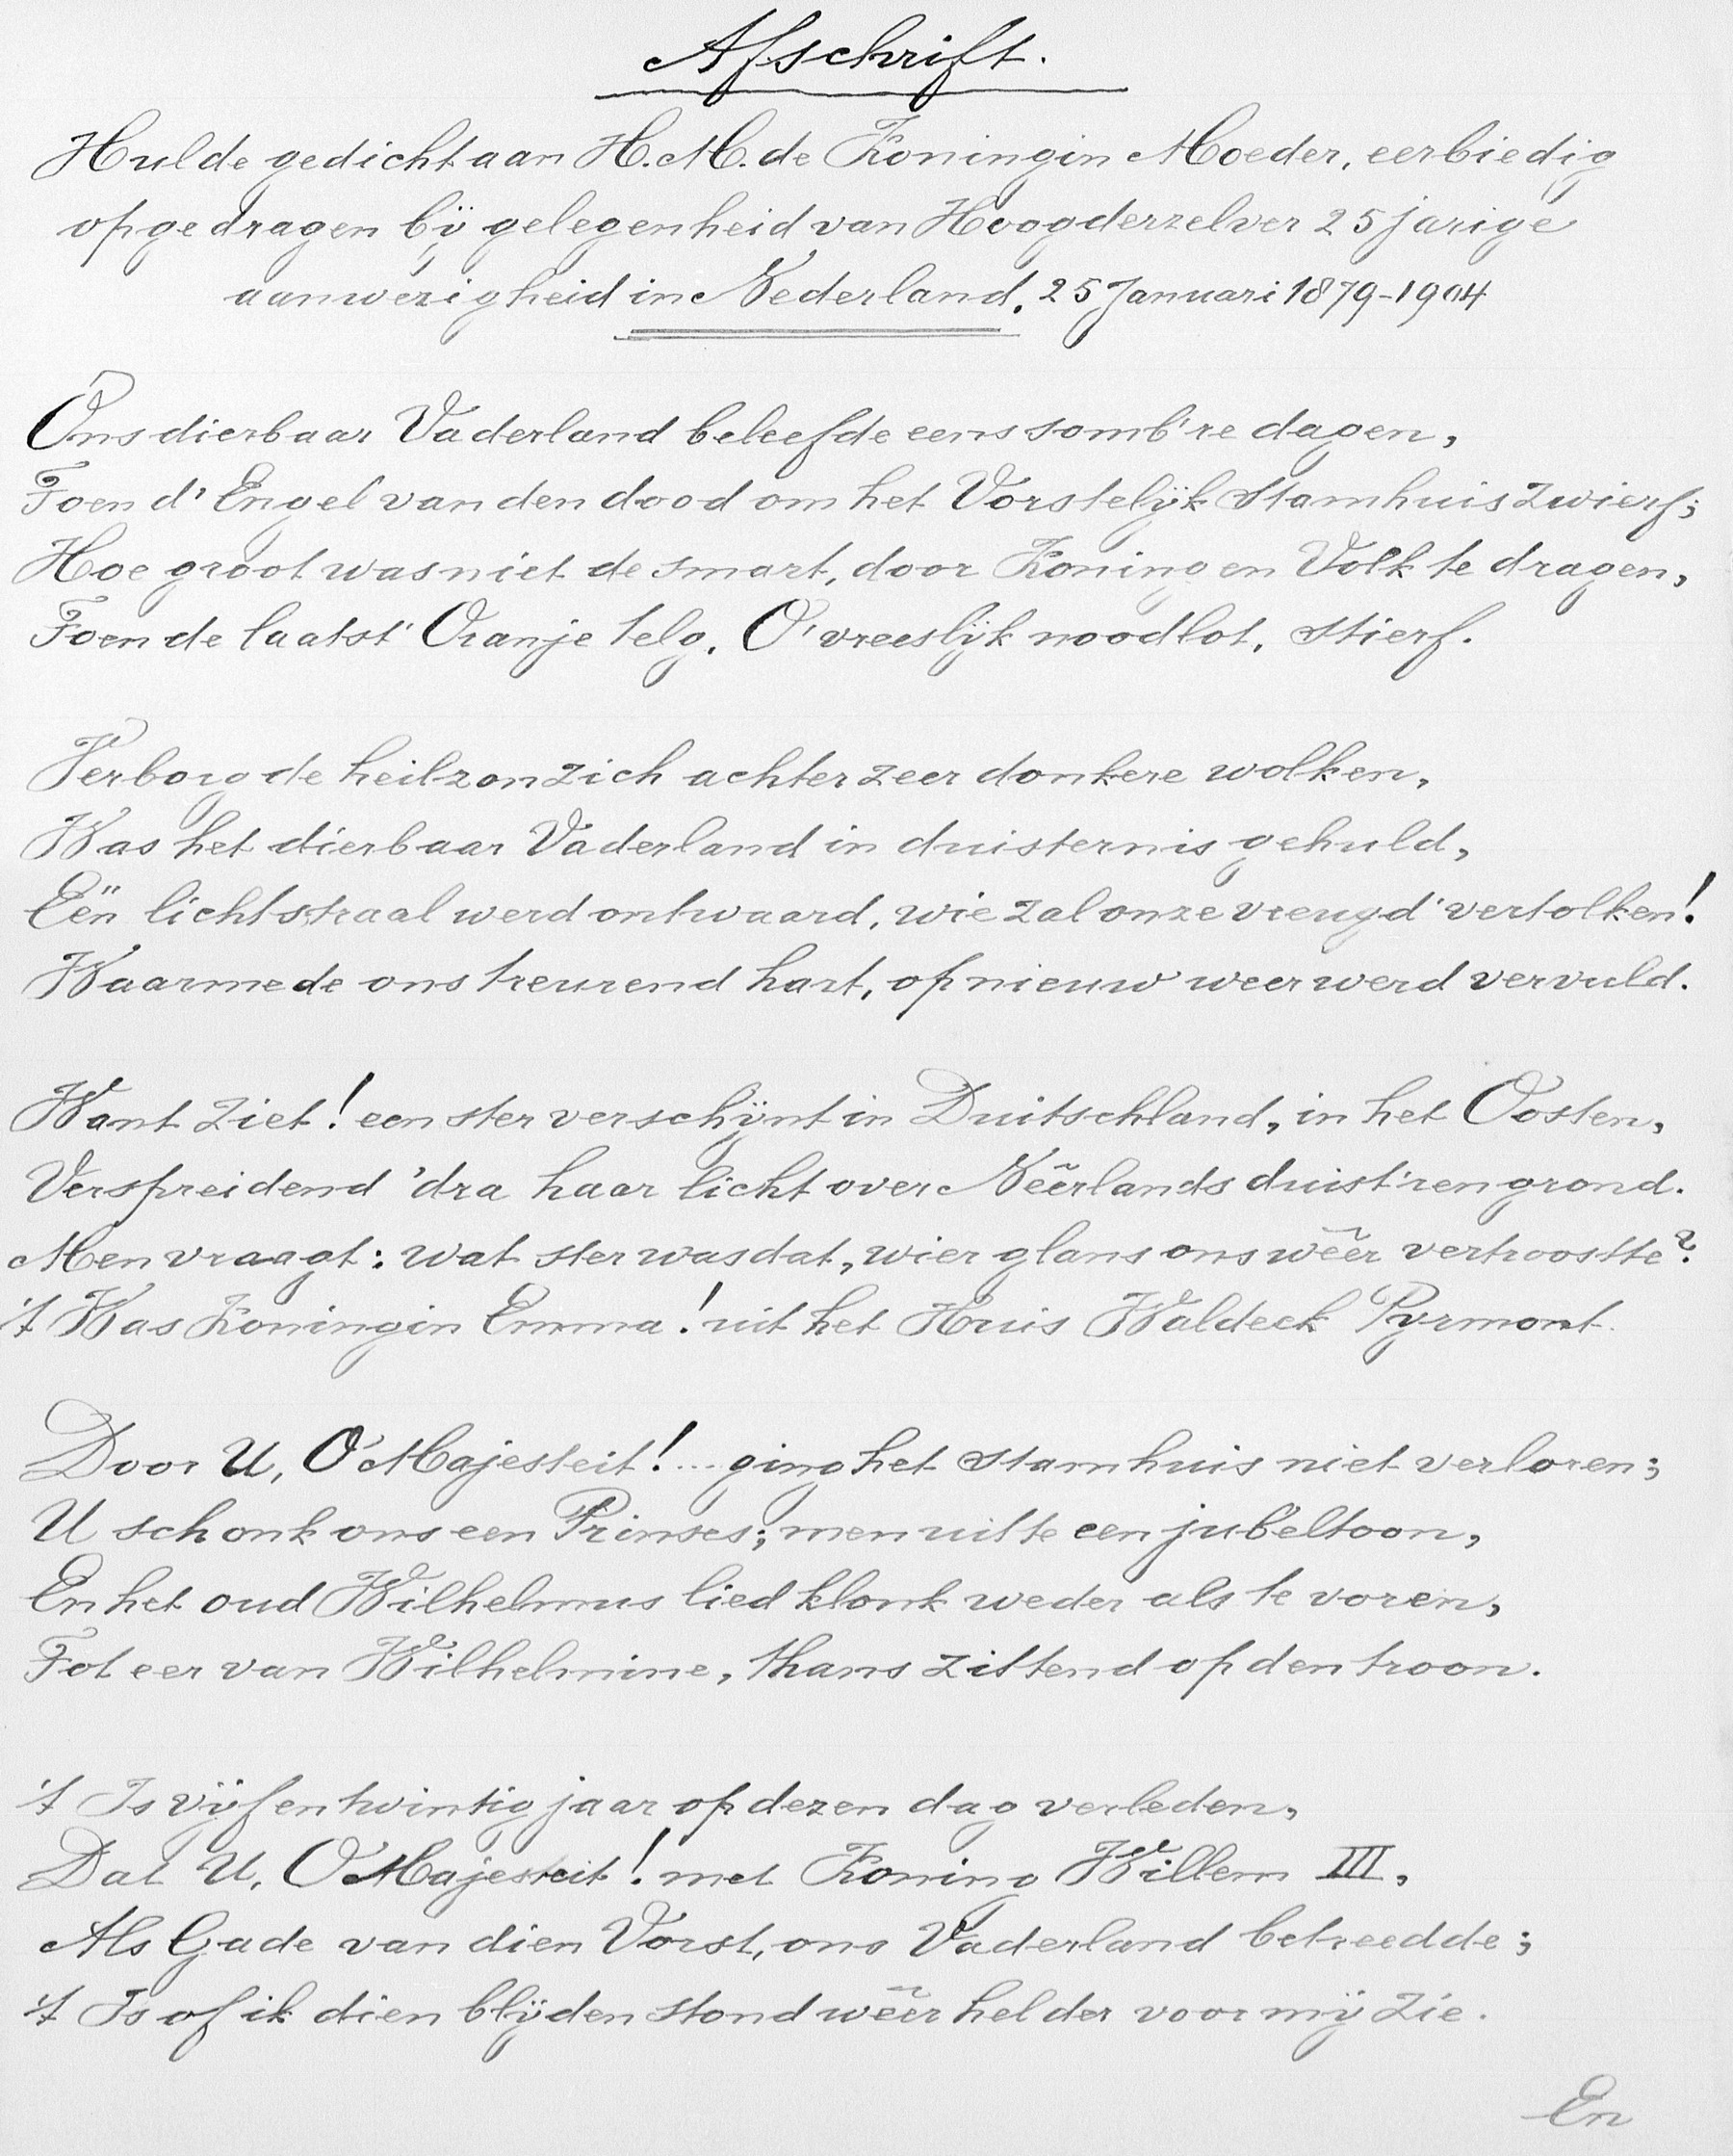 Afschrift.
Hulde gedicht aan H.M. de Koningin Moeder, eerbiedig
opgedragen bij gelegenheid van Hoogderzelver 25 jarige
aanwezigheid in Nederland. 25 Januari 1879-1904
Ons dierbaar Vaderland beleefde eens somb're dagen,
Toen d' Engel van den dood om het Vorstelijk Stamhuis zwierf;
Hoe groot was niet de smart, door Koning en Volk te dragen,
Toen de laatst' Oranje telg, O' vreeslijk noodlot, stierf.
Verborg de heilzon zich achter zeer donkere wolken,
Was het dierbaar Vaderland in duisternis gehuld,
Eën lichtstraal werd ontwaard, wie zal onze vreugd' vertolken!
Waarmede ons treurend hart, opnieuw weer werd vervuld.
Want ziet! een ster verschijnt in Duitschland, in het Oosten,
Verspreidend 'dra haar licht over Neêrlands duist'ren grond.
Men vraagt: wat ster was dat, wier glans ons wêer vertroostte?
't Was Koningin Emma! uit het Huis Waldeck Pyrmont.
Door U, O' Majesteit!... ging het stamhuis niet verloren;
U schonk ons een Prinses; men uitte een jubeltoon,
En het oud Wilhelmus lied klonk weder als te voren,
Tot eer van Wilhelmine, thans zittend op den troon.
't Is vijfentwintig jaar op dezen dag verleden,
Dat U, O' Majesteit! met Koning Willem III,
Als Gade van dien Vorst, ons Vaderland betreedde;
't Is of ik dien blijden stond wêer helder voor mij zie.
En